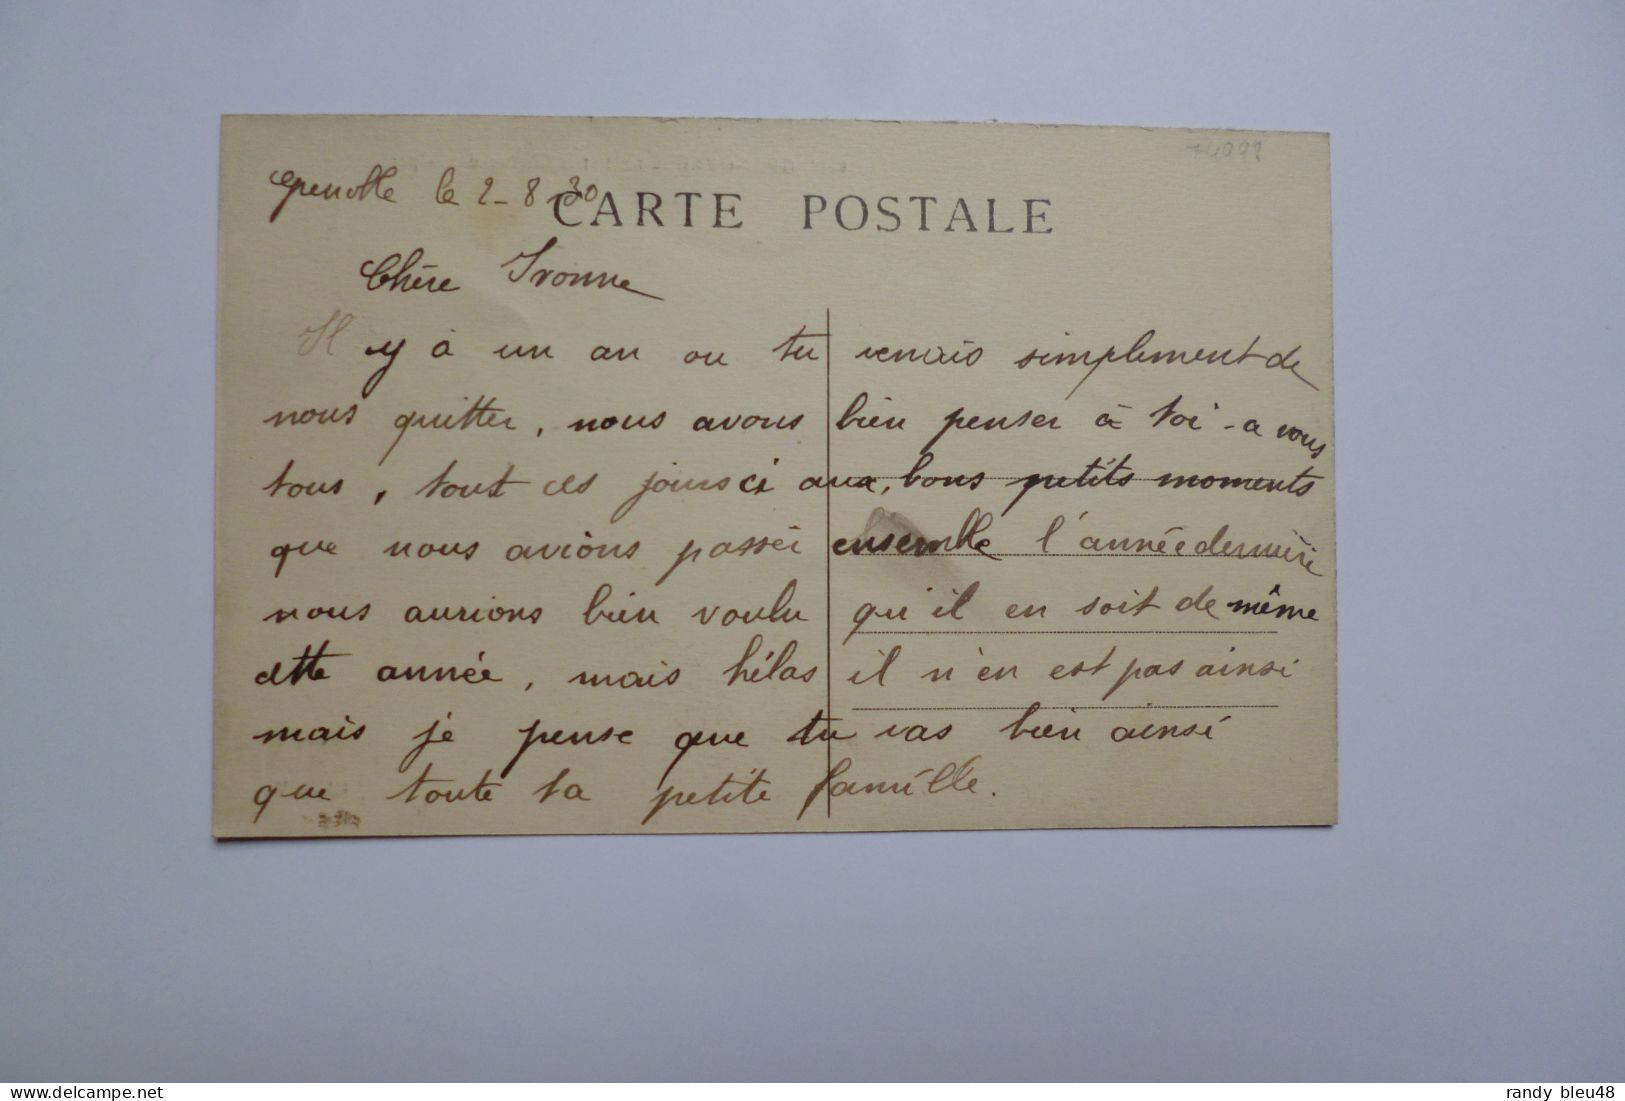 74098
Grenoble le 2-8-30
CARTE POSTALE
Chère Ivonne
Il y à un an ou tu venais simplement de
nous quitter, nous avons bien penser à toi - a vous
tous, tout ces jours ci aux, bons petits moments
que nous avions passer ensemble l'année dernière
nous aurions bien voulu qu'il en soit de même
cette année, mais hélas il n'en est pas ainsi
mais je pense que tu vas bien ainsi
que toute ta petite famille.
delcampe.net
randy_bleu48